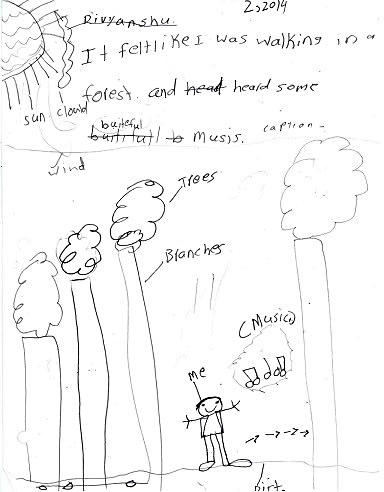 Divyanshu.
2,2014
It feltlike I was walking in a
forest. and head heard some
buiteful
butifull b Musis.
caption.
sun
cloud
wind
Trees
Blanches
(Music)
Me
Dirt.